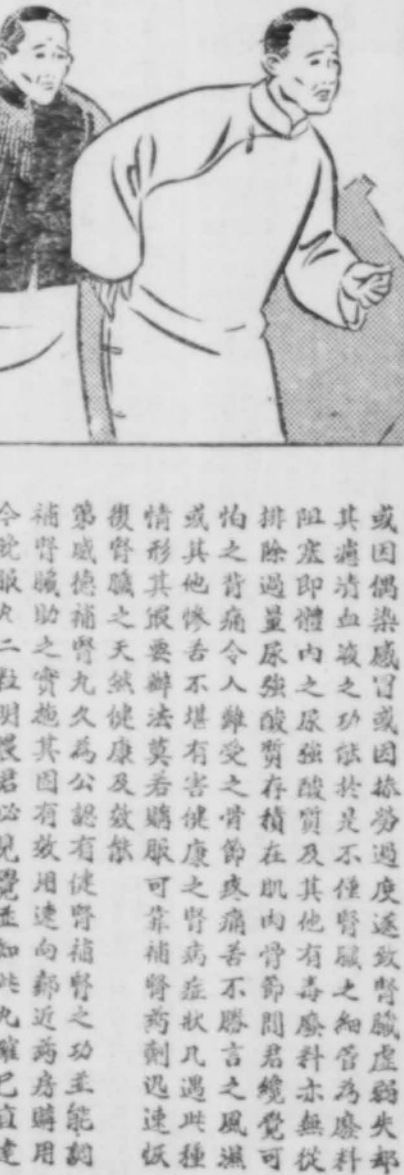 或因偶染感冒或因操勞過度遂致腎臟虛弱失却
其濾清血液之功能於是不僅腎臟之細管為廢料
阻塞即體內之尿強酸質及其他有毒廢料亦無從
排除過量尿強酸質存積在肌肉骨節間君纔覺可
怕之背痛令人難受之骨節疼痛苦不勝言之風濕
或其他慘苦不堪有害健康之腎病症狀凡遇此種
情形其最要辦法莫若購服可靠補腎药劑迅速恢
復腎臟之天然健康及效能
第威德補腎丸久為公認有健腎補腎之功並能調
補腎臟助之實施其固有效用速向鄰近药房購用
今晚服丸二粒明晨君必見覺並知此丸確已直達